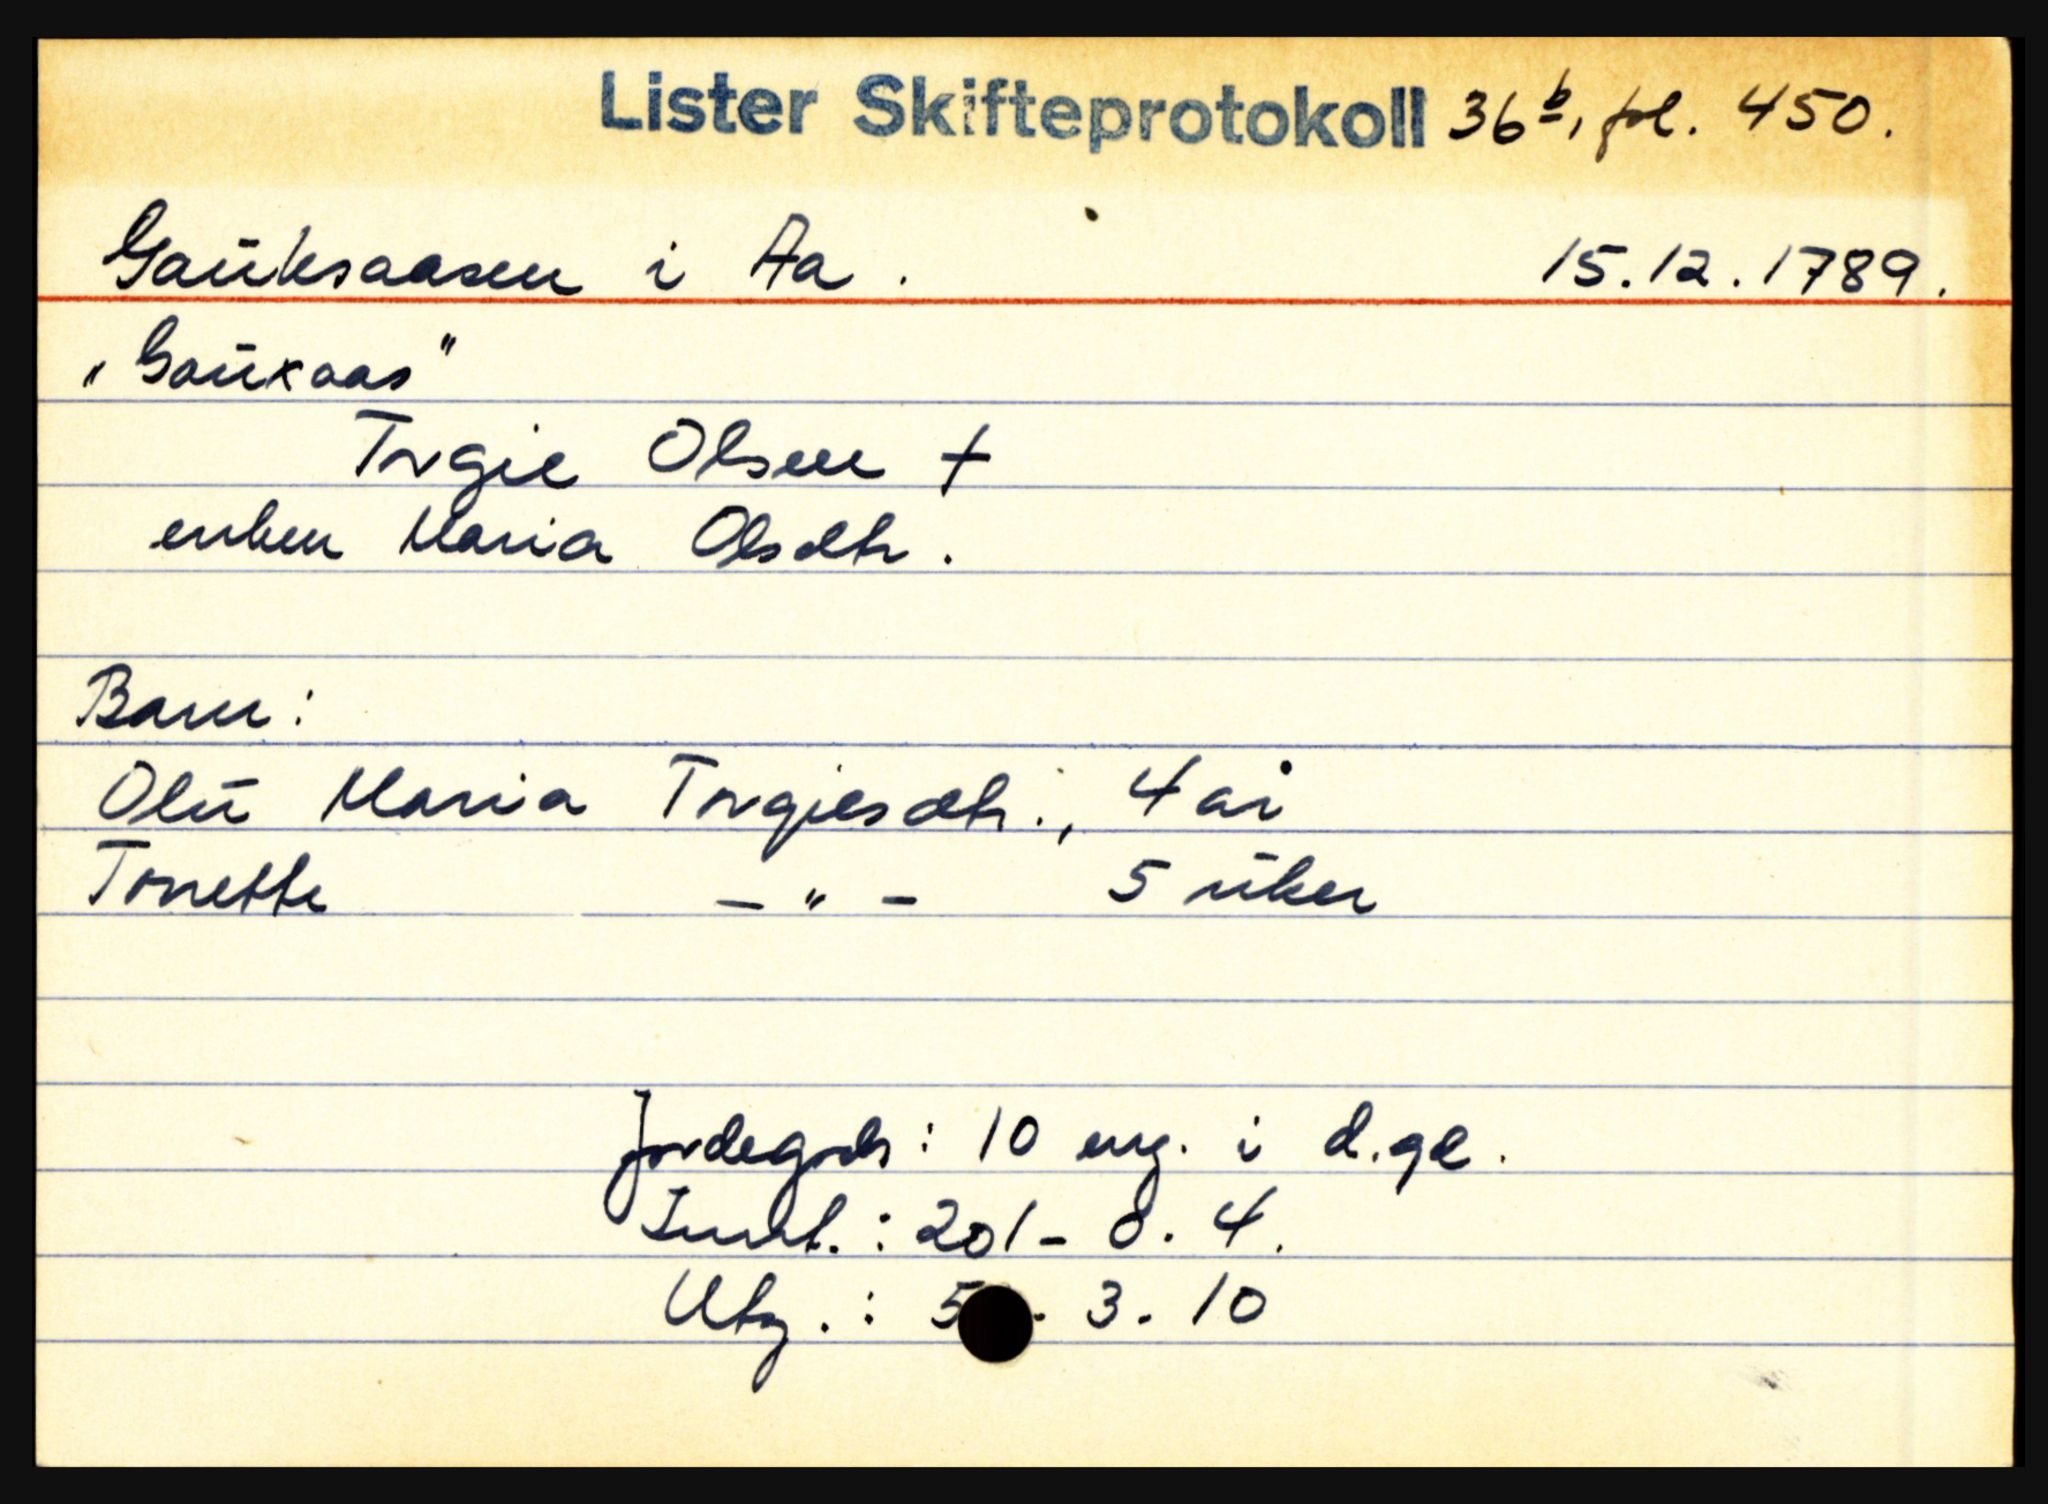 Lister Skifteprotokoll 36b, fol. 450.
Gauksaasen i Aa. 15.12.1789.
"Gauxaas"
Torgie Olsen †
enken Maria Olsdtr.
Barn:
Olu Maria Torgiesdtr., 4 år
Tonette - " - 5 uker
Jordegods: 10 eng. i d.gd.
Innt.: 201 - 0. 4.
Utg.: 3. 10